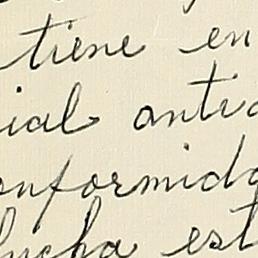 tiene en
ial anti
onformida
lucha est